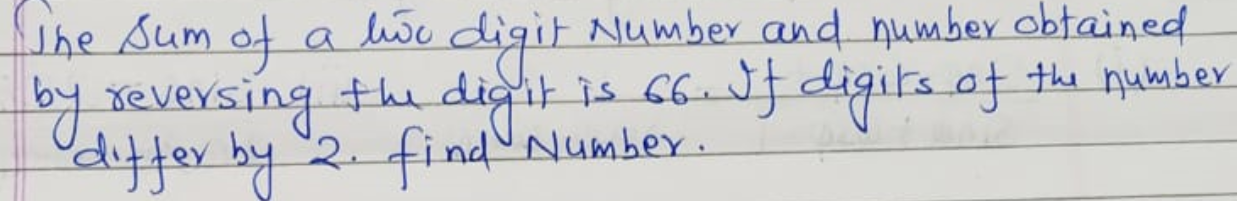 The Sum of a two digit Number and number obtained
by reversing the digit is 66. If digits of the number
differ by 2. find Number.